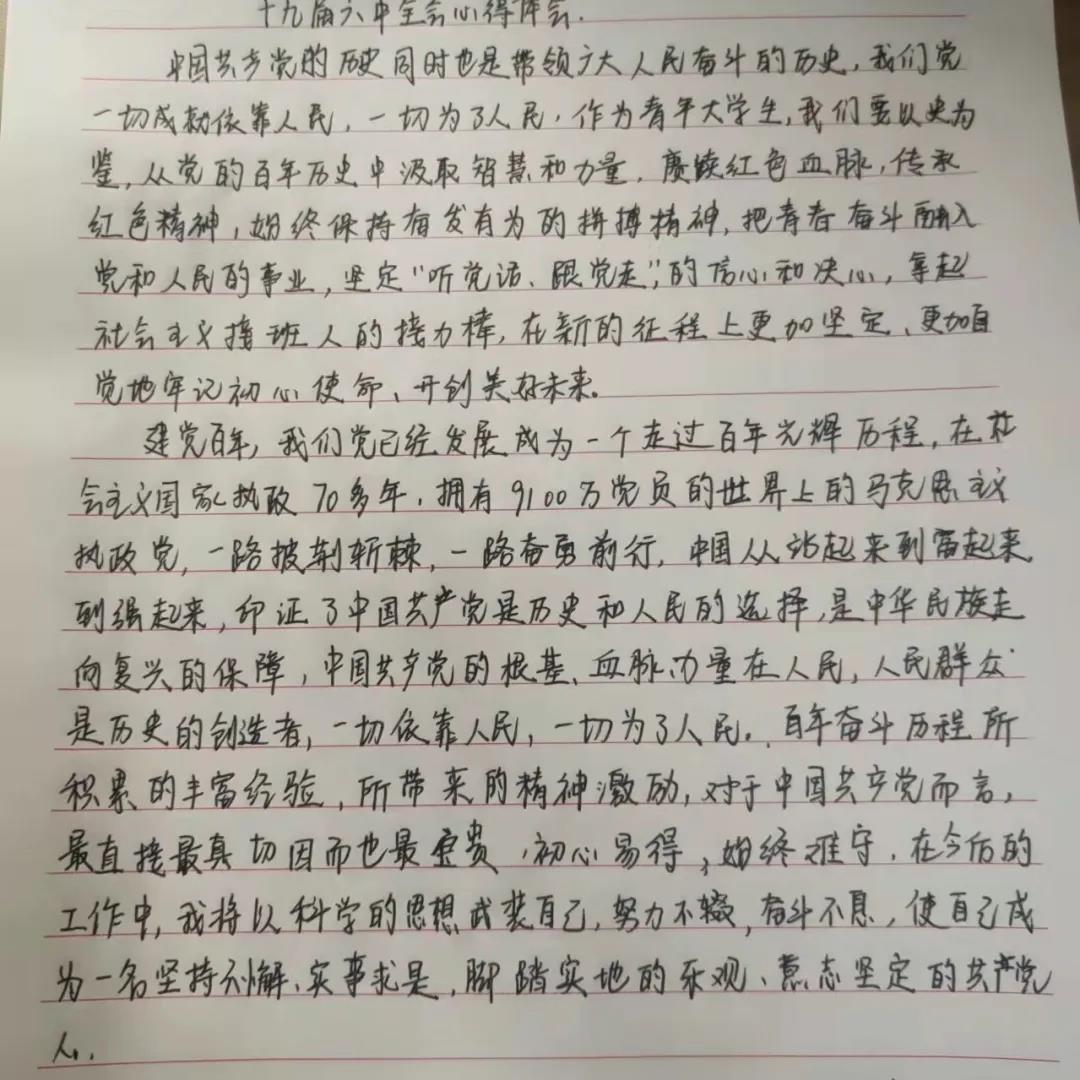 十九届六中全会心得体会.
中国共产党的历史同时也是带领广大人民奋斗的历史,我们党
一切成就依靠人民,一切为了人民,作为青年大学生,我们要以史为
鉴,从党的百年历史中汲取智慧和力量,赓续红色血脉,传承
红色精神,始终保持奋发有为的拼搏精神,把青春奋斗融入
党和人民的事业,坚定"听党话、跟党走"的信心和决心,
社会主义接班人的接力棒,在新的征程上更加坚定、更加自
觉地牢记初心使命、开创美好未来。
建党百年,我们党已经发展成为一个走过百年光辉历程,在社
会主义国家执政70多年,拥有9100万党员的世界上的马克思主义
执政党,一路披荆斩棘,一路奋勇前行,中国从站起来到富起来
到强起来,印证了中国共产党是历史和人民的选择,是中华民族走
向复兴的保障,中国共产党的根基、血脉、力量在人民,人民群众
是历史的创造者,一切依靠人民,一切为了人民。百年奋斗历程所
积累的丰富经验,所带来的精神激励,对于中国共产党而言,
最直接最真切因而也最宝贵,初心易得,始终难守,在今后的
工作中,我将以科学的思想武装自己,努力不辍,奋斗不息,使自己成
为一名坚持不懈、实事求是,脚踏实地的乐观、意志坚定的共产党
人.